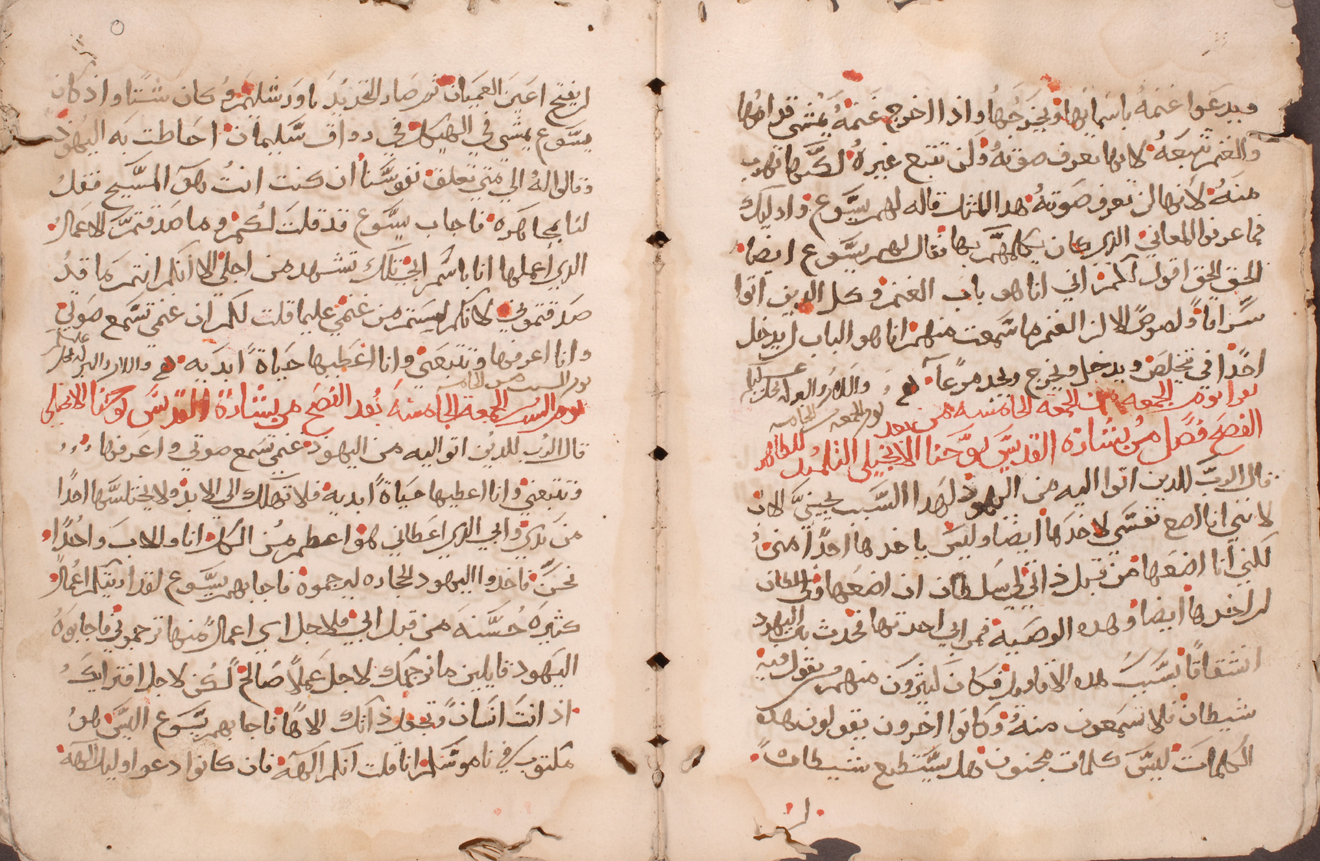 ويدعوا غنمه باسمائها ويخرجها واذا اخرج غنمه يمشي قدامها
والغنم تتبعه لانها تعرف صوته ولن تتبع غيره لكنها تهرب
منه لانها لن تعرف صوته هذا المثل قاله لهم يسوع واوليك
فما عرفوا المعاني الذي كان كلمهم بها فقال لهم يسوع ايضا
الحق الحق اقول لكم اني انا هو باب الغنم وكل الذين اتوا
سراقا ولصوصا الا ان الغنم ما سمعت منهم انا هو الباب ان يدخل
احدا في تخيلص ويدخل ويخرج ويجد مرعا
الجمعه الخامسه من بعد
يوم الجمعه الخامسه
الفصح فصل من بشارة القديس يوحنا الانجيلي التلميذ الطاهر
قال الرب للذين اتوا اليه من اليهود لهذا السبب يحبني الاب
لانني انا اضع نفسي لاخذها ايضا وليس ياخذها احدا مني
لكني انا اضعها من قبل ذاتي لي سلطان ان اضعها ولي سلطان
ان اخذها ايضا وهذه الوصية من ابي اخذتها فحدث بين اليهود
انشقاقا بسبب هذه الاقاويل فكان كثيرون منهم يقول فيه
شيطان فلا تسمعون منه وكانوا اخرون يقولون هذه
الكلمات ليس كلمات مجنون هل يستطيع شيطان
ان يفتح اعين العميان ثم صار التجديد باورشليم وكان شتا واذ كان
يسوع يمشي في الهيكل في رواق سليمان احاطت به اليهود
وقالوا له الي متي تعلق نفوسنا ان كنت انت هو المسيح فقل
لنا مجاهره فاجاب يسوع قد قلت لكم وما صدقتم الاعمال
الذي اعملها انا باسم ابي تلك تشهد من اجلي الا انكم انتم ما قد
صدقتموني لانكم ليستم من غنمي علي ما قلت لكم ان غنمي تسمع صوتي
وانا اعرفها وتتبعني وانا اعطيها حياة ابديه
الجمعة الخامسة بعد الفصح من بشارة القديس يوحنا الانجيلي
قال الرب للذين اتوا اليه من اليهود غنمي تسمع صوتي واعرفها
وتتبعني وانا اعطيها حياة ابديه فلا تهلك الي الابد ولا يختلسها احدا
من يدي وابي الذي اعطاني هو اعظم من الكل انا والاب واحدا
نحن فاخذوا اليهود الحجاره ليرجموه فاجابهم يسوع لقد اريتكم اعمال
كثيرة حسنة من قبل ابي فلاجل اي اعمال منها ترجموني فاجاوه
اليهود قايلين ما نرجمك لاجل عملا صالحا لكن لاجل افترايك
اذ انت انسان وتجعل ذاتك الاها فاجابهم يسوع اليس هو
مكتوب في ناموسكم انا قلت انكم الهة فان كانوا دعوا اوليك الهة